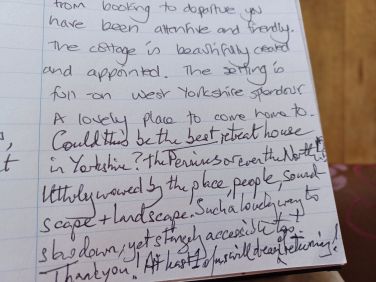 from booking to departure you
have been attentive and friendly.
The cottage is beautifully created
and appointed. The setting is
full-on West Yorkshire splendour
A lovely place to come home to.
t
Could this be the best retreat house
in Yorkshire? the Pennines or even the North!
Utterly wowed by the place, people, sound
scape + landscape. Such a lovely way to
slow down, yet strangely accessible too!
Thank you! At least 1 of us will be returning!